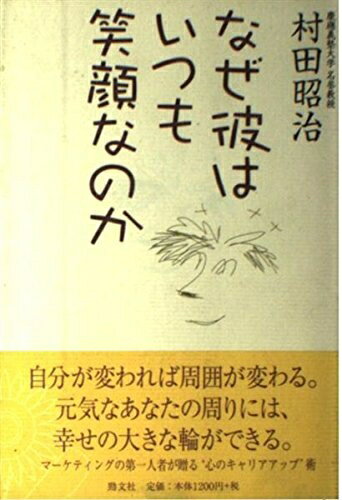 慶應義塾大学 名誉教授
村田昭治
なぜ彼は
いつも
笑顔なのか
自分が変われば周囲が変わる。
元気なあなたの周りには、
幸せの大きな輪ができる。
マーケティングの第一人者が贈る“心のキャリアアップ”術
勁文社 定価：本体1200円+税